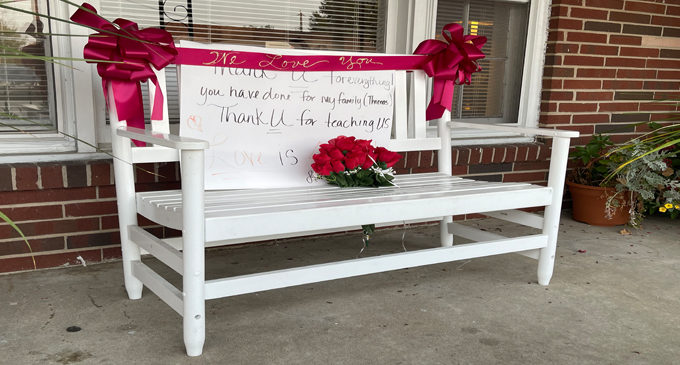 We Love You
Thank U for everything!
you have done for my family (Thomas
Thank U for teaching us
Love is